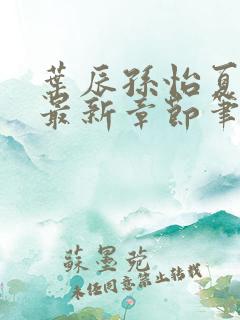 葉辰孫怡夏
最新章節筆
蘇墨苑
未经同意禁止转载